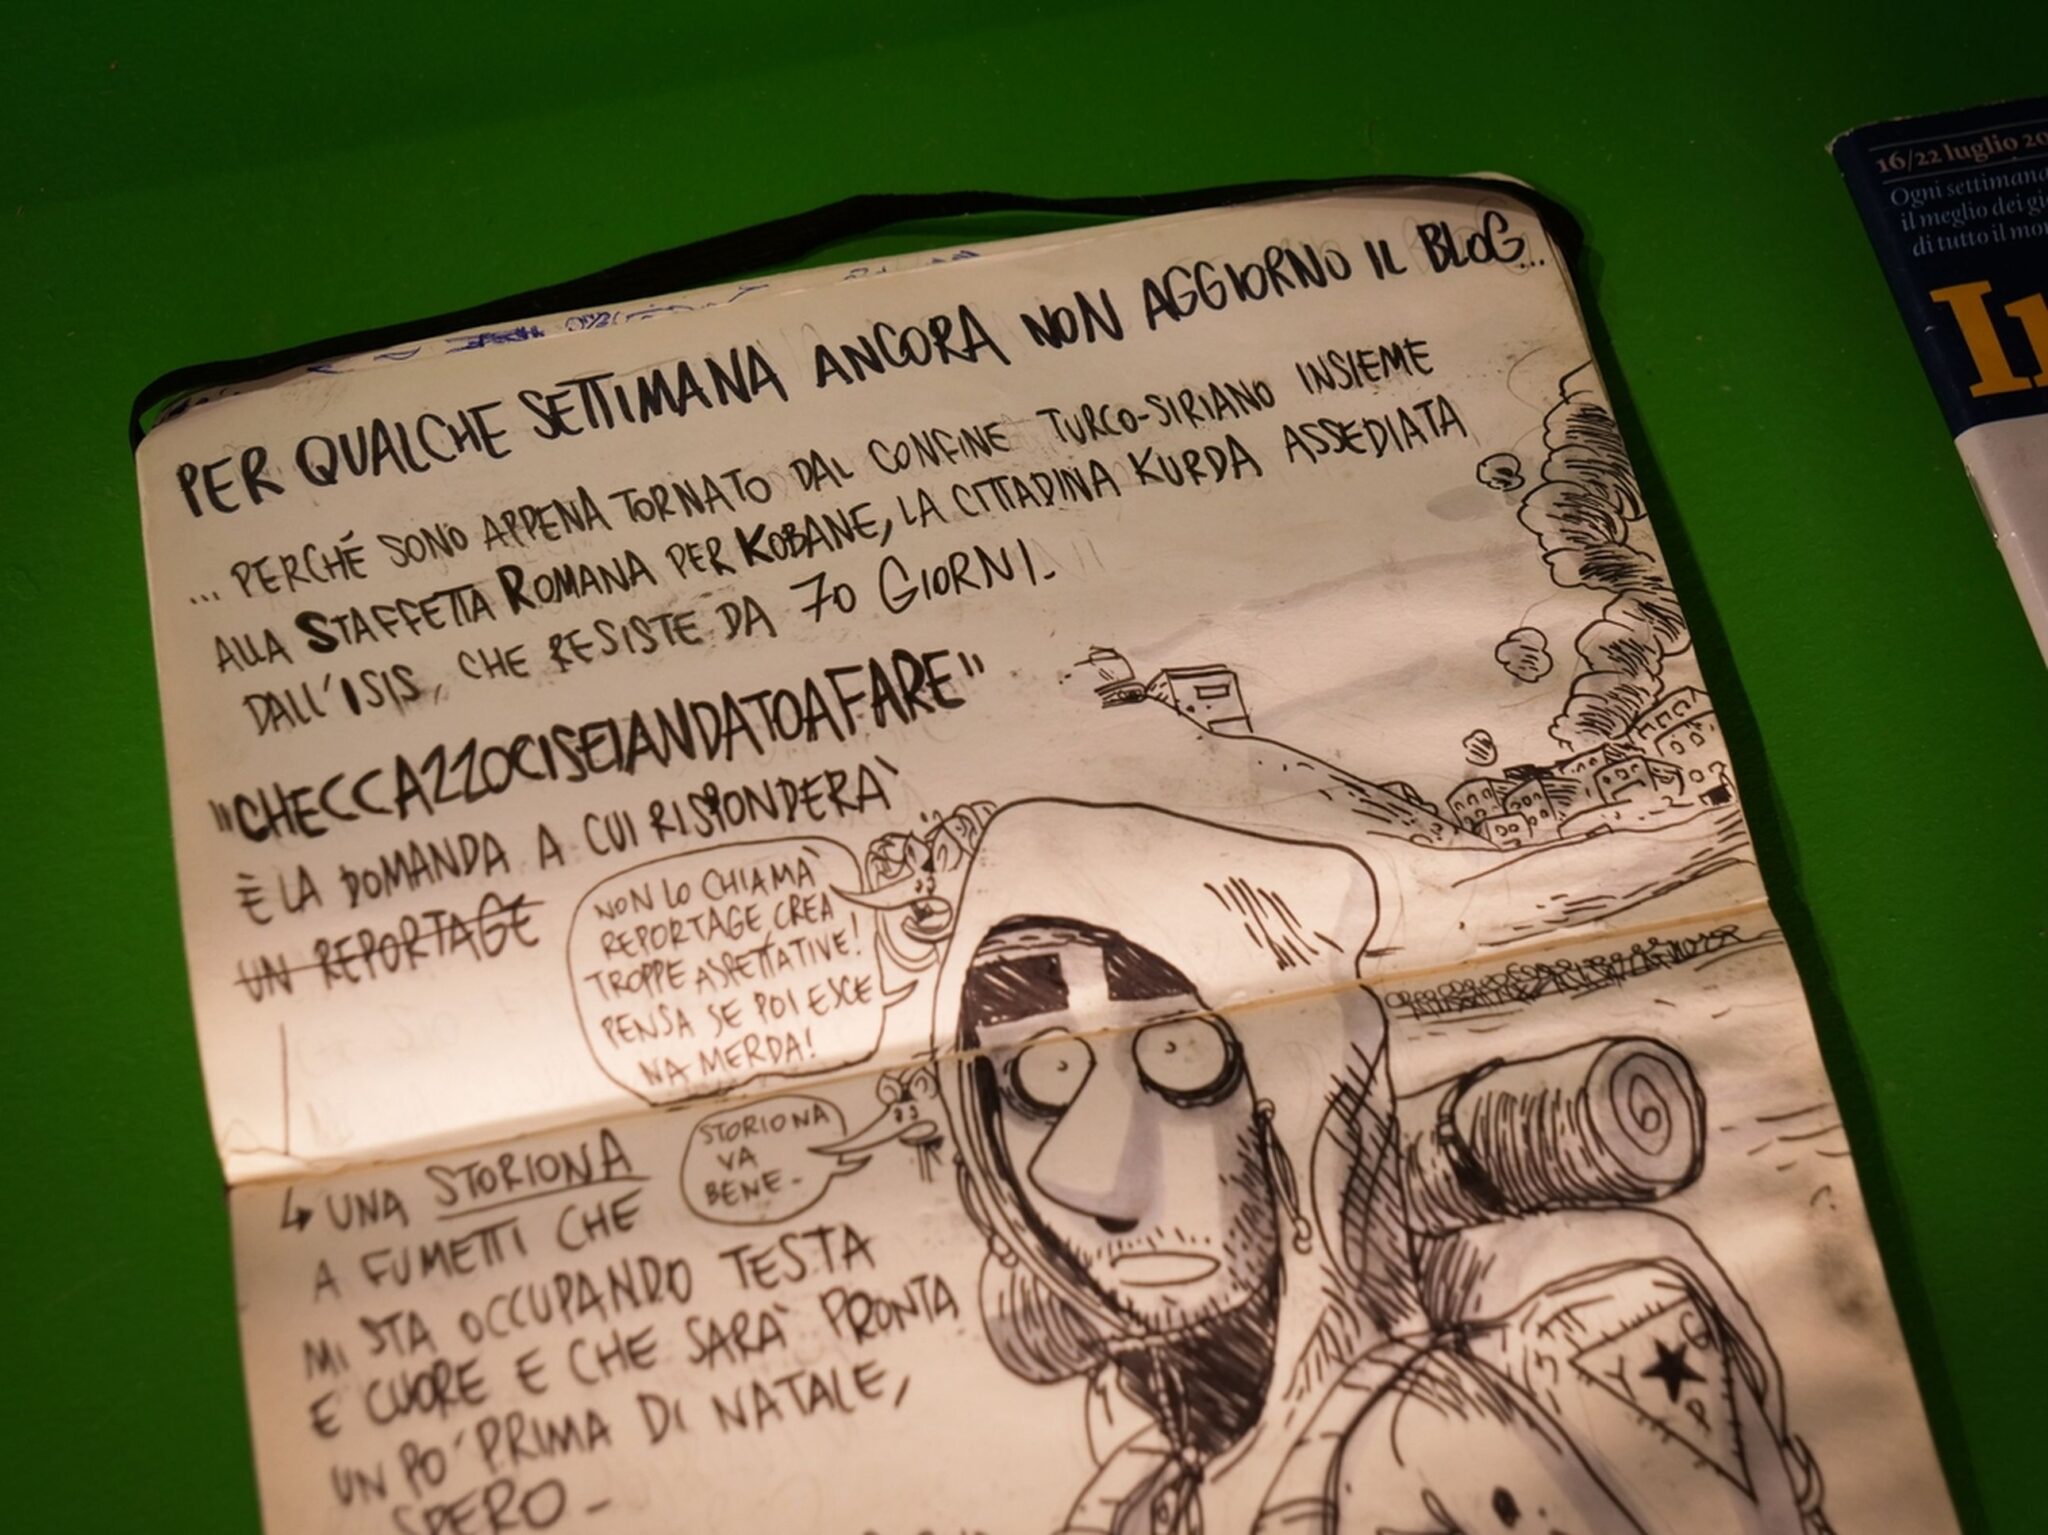 PER QUALCHE SETTIMANA ANCORA NON AGGIORNO IL BLOG...
... PERCHÉ SONO APPENA TORNATO DAL CONFINE TURCO-SIRIANO INSIEME
ALLA STAFFETTA ROMANA PER KOBANE, LA CITTADINA KURDA ASSEDIATA
DALL'ISIS, CHE RESISTE DA 70 GIORNI.
"CHECCAZZOCISEIANDATOAFARE"
È LA DOMANDA A CUI RISPONDERÀ
UN REPORTAGE
NON LO CHIAMA'
REPORTAGE, CREA
TROPPE ASPETTATIVE!
PENSA SE POI ESCE
NA MERDA!
UNA STORIONA
A FUMETTI CHE
MI STA OCCUPANDO TESTA
E CUORE E CHE SARÀ PRONTA
UN PO' PRIMA DI NATALE,
SPERO-
STORIONA
VA
BENE-
Y P G
16/22 luglio 20
Ogni settimana
il meglio dei gi
di tutto il mo
In